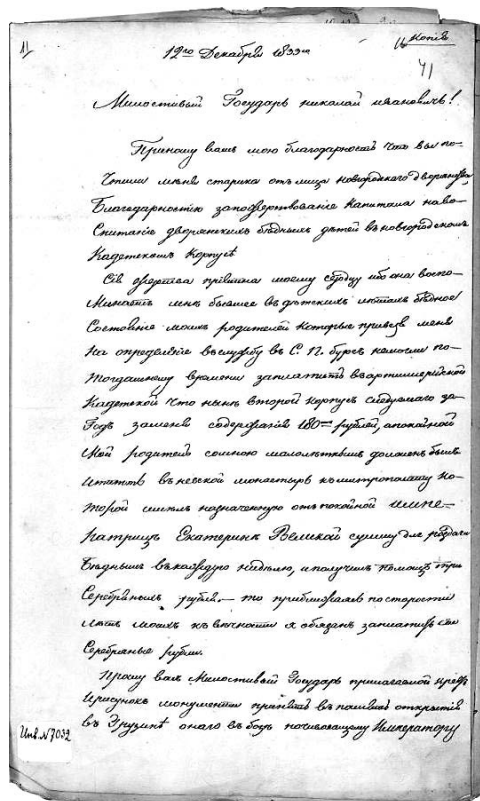 11
Копія
12го Декабря 1833го
41
Милостивый Государь николай ивановичь!
Приношу вамъ мою благодарность что вы по-
чтили меня старика отъ лица новгородскаго дворянства
Благодарностію запожертвованіе капитала наво-
спитаніе дворянскихъ бѣдныхъ дѣтей въновгородскомъ
Кадетскомъ Корпусѣ
Сія жертва пріятна моему сердцу ибо она воспо-
минаетъ мнѣ бывшее въдѣтскихъ лѣтахъ бѣдное
Состояніе моихъ родителей которые привезя меня
на опредѣленіе въслужбу въ С. П. бургъ немогли по-
тогдашнему времени заплатить въартиллерійской
Кадетской что нынѣ второй корпусъ слѣдуемаго за
годъ замѣня содержаніе 180 рублей, апокойной
Мой родитель сомною малолѣтнымъ долженъ былъ
иттить въневской монастырь къмитрополиту ко-
торой имѣлъ назначенную отъпокойной импе-
ратрицъ Екатеринъ Великой сумму для раздачи
Бѣднымъ въкаждую недѣлю, иполучилъ помощь три
Серебряныхъ рубля — то приближаясь постарости
лѣтъ моихъ къвѣчности я обязанъ заплатить сіи
Серебряные рубли.
Прошу васъ Милостивый Государь прилагаемой при семъ
Рисунокъ монумента принять въпамять открытія
въ Грузинѣ онаго въбозѣ почивающему Императору
Инв. N 7032